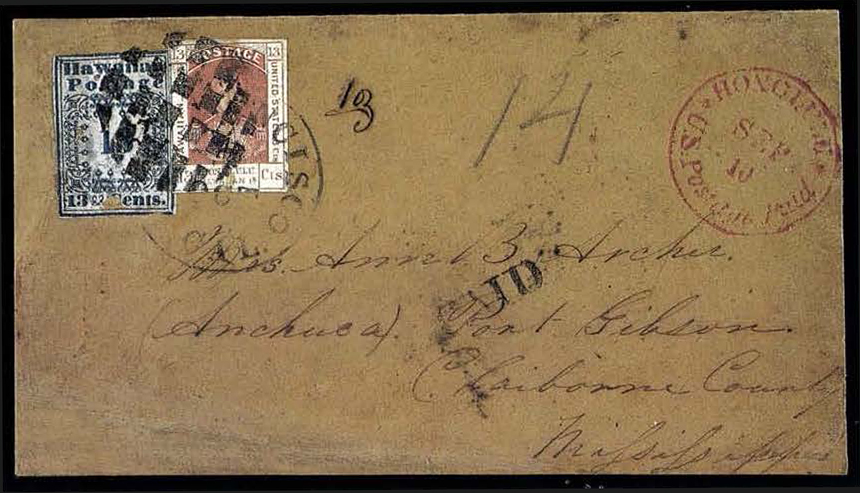 Hawaiian
Postage
13 Cents.
13 POSTAGE 13
UNITED STATES
Cts
10/3
14
HONOLULU
SEP.
10
U.S. Postage Paid
CISCO
PAID
Mrs. Ann B. Archer.
(Anchuca) Port Gibson.
Claibonne County
Mississippi